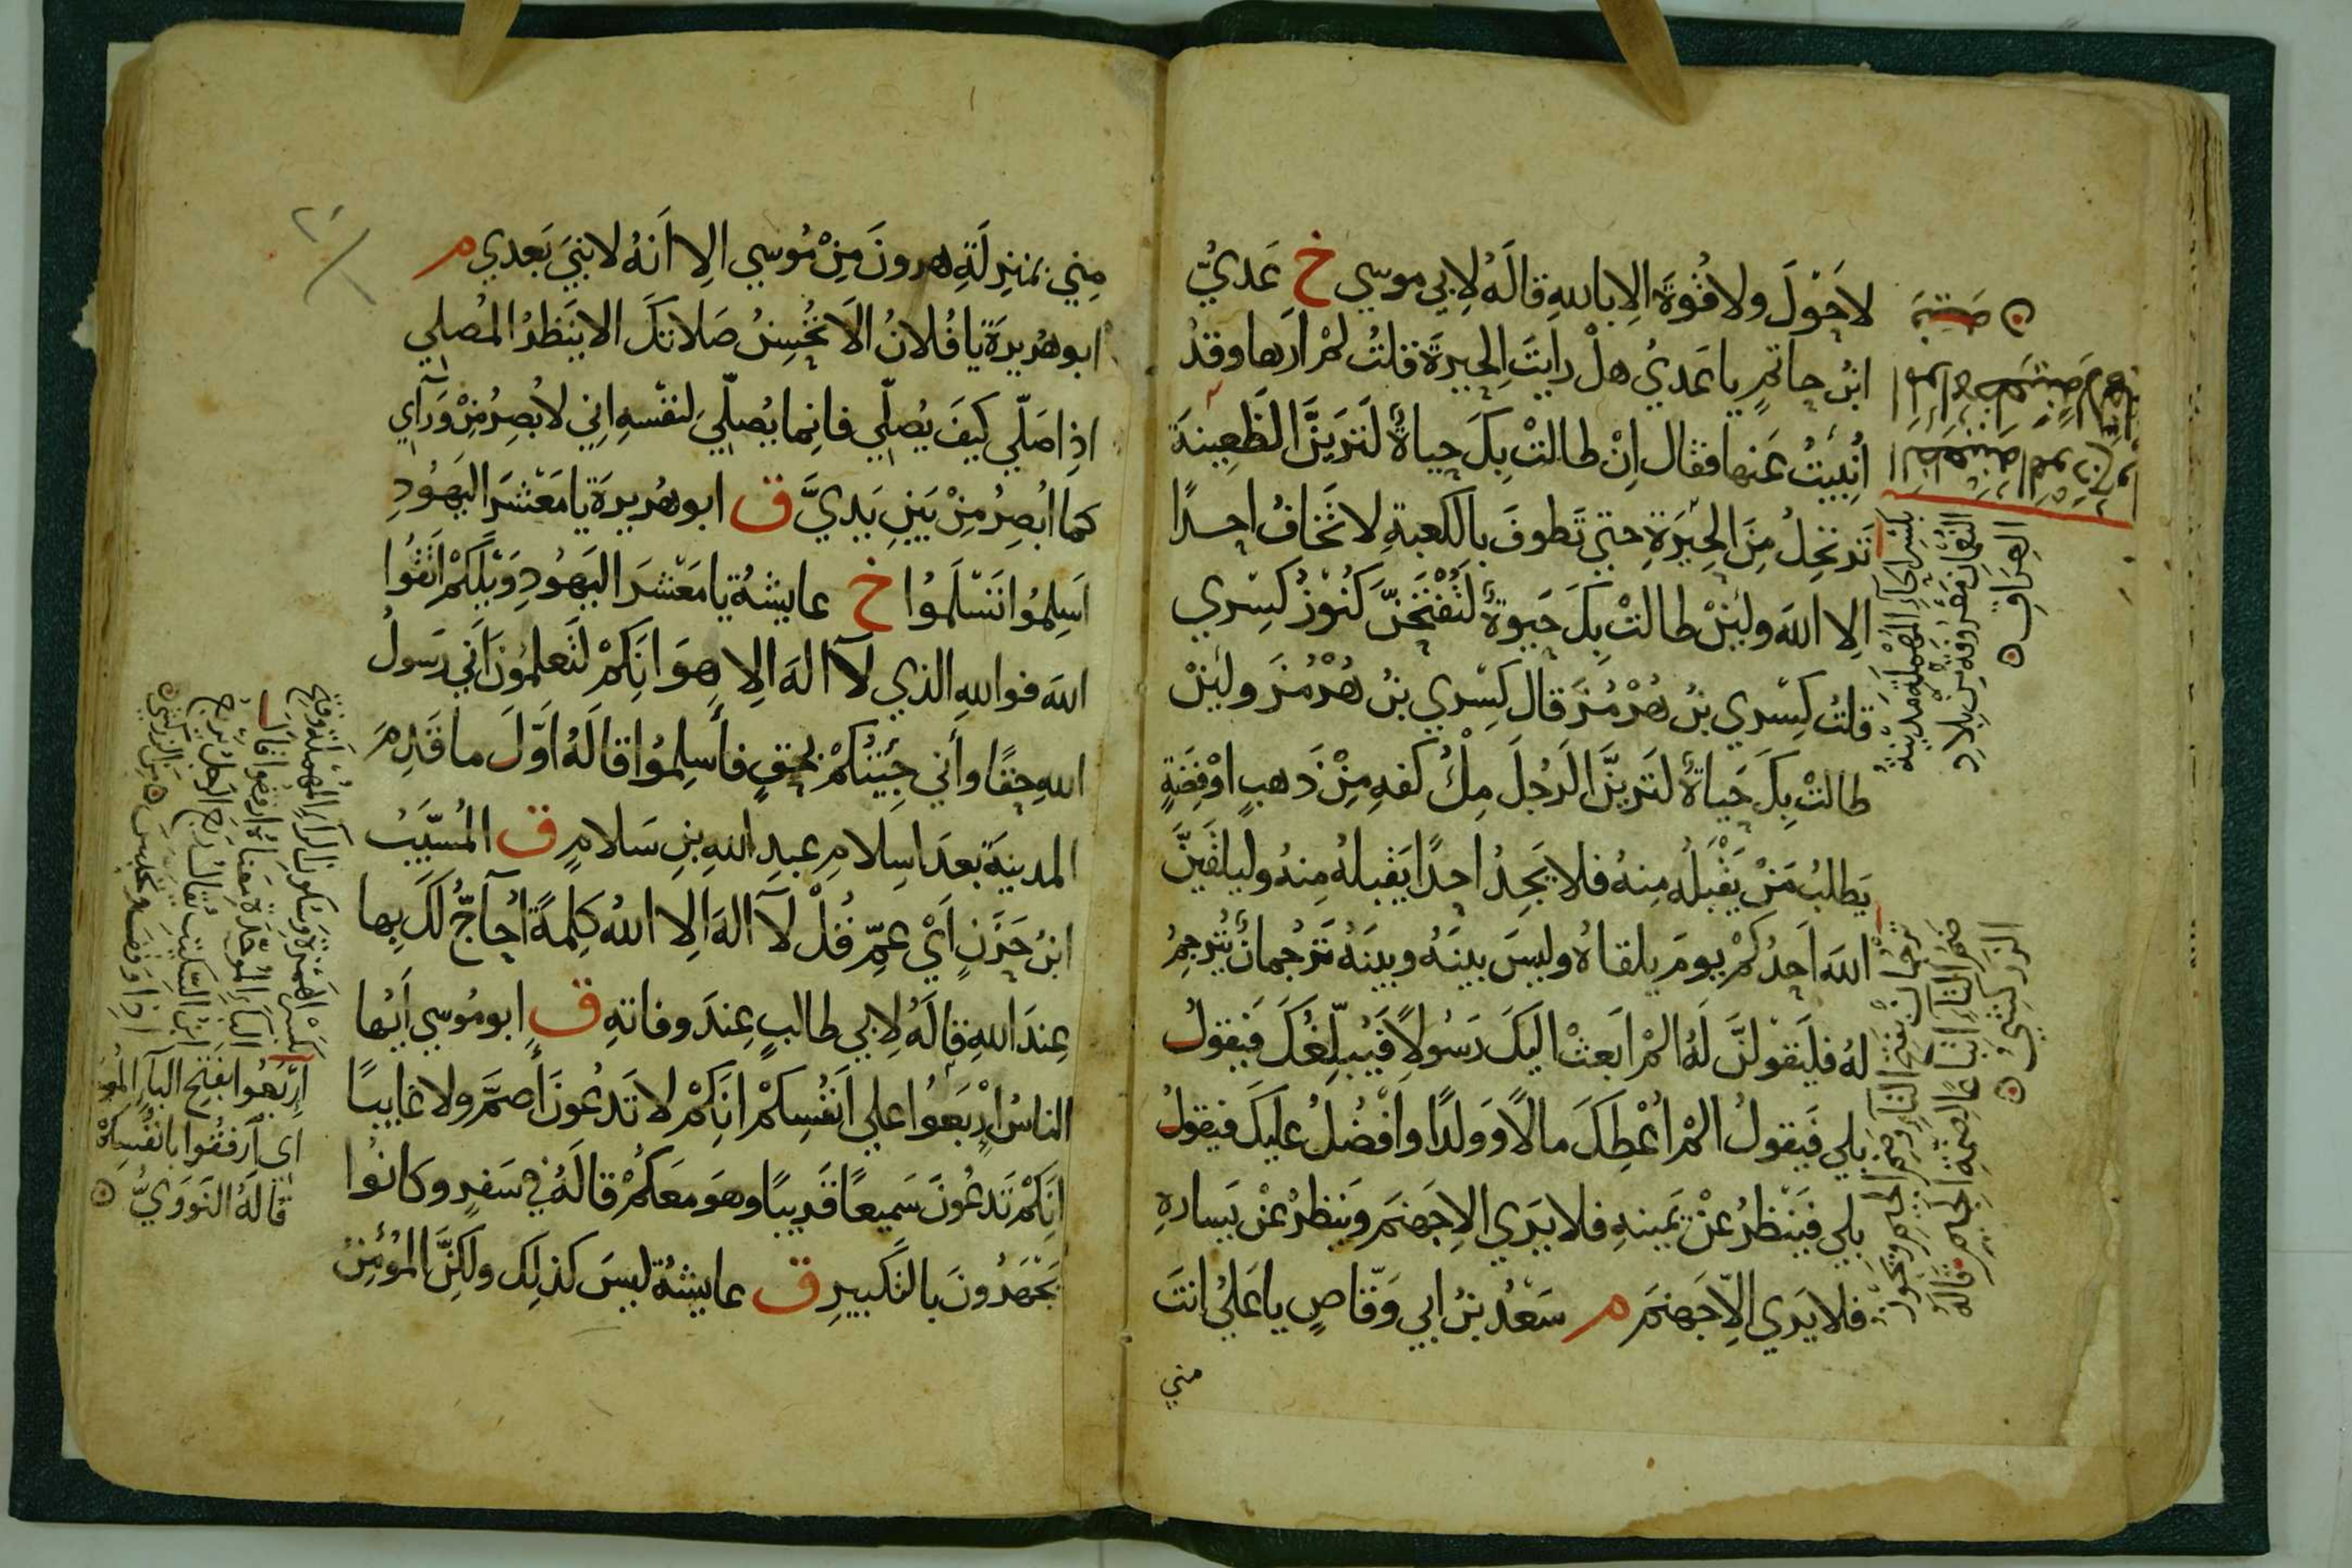 لاحَوْلَ ولا قُوَّةَ اِلا باللهِ قالَهُ لِابي موسي خ عَديُّ
ابنُ حاتمٍ يا عَديُ هلْ رايتَ الحِيرةَ قلتُ لمْ ارها وقدْ
اُنْبِيتُ عَنها فقال اِنْ طالتْ بِكَ حياةٌ لَتَرَيَنَّ الظَعِينةَ
تَرتحِلُ مِنَ الحِيْرَةِ حتي تَطوفَ بالكعبةِ لا تَخافُ احدًا
اِلا اللهَ ولئِنْ طالتْ بِكَ حَيوةٌ لَتُفْتَحَنَّ كُنُوْزُ كِسْري
قلتُ كِسْري بنُ هُرْمُزَ قال كِسْري بنُ هُرْمُزَ ولئِنْ
طالتْ بِكَ حَياةٌ لَتَرَيَنَّ الرَجُلَ مِلْءُ كفهِ مِنْ ذَهبٍ اوْ فِضَةٍ
يَطلبُ مَنْ يَقْبَلُه مِنهُ فلا يَجِدُ احدًا يَقبلهُ مِنهُ وليلقَيَنَّ
اللهَ اَحدُكمْ يومَ يلقاهُ وليسَ بينَهُ وبينَهُ تَرْجُمانٌ يُتَرجِمُ
لهُ فليَقولنَّ لَهُ المْ ابَعثْ اليكَ رَسُولاً فَيُبلِّغُكَ فَيقولُ
بَلي فَيقولُ المْ اُعْطِكَ مالًا وَوَلدًا واُفْضُلُ عليكَ فيقولُ
بلي فَيَنْظرُ عنْ يَمينهِ فلا يَري اِلا جَهنمَ وَيَنظرُ عنْ يَسارهِ
فلا يَري اِلاّ جَهنمَ م سَعْدُ بنُ ابي وَقّاصٍ يا عَليُ انتَ
مني
بكسْرِ الحاءِ المُهْمَلةِ مَدِيْنةُ
النُعْمَانِ مَعْرُوفةٌ مِنْ بِلادِ
العِراقِ
تَرجُمانٌ بفتحِ التآءِ وضمِ الجيمِ ويَجُوزُ
ضَمُ التآءِ اتباعًا لِضمَةِ الجيمِ قالهُ
الزركشيُّ
مِنِي بمنزِلَةِ هرونَ مِنْ مُوسي اِلا اَنَهُ لا نبيَ بَعدي م
ابو هُريرَةَ يا فُلانُ اَلا تُحْسِنُ صَلاتكَ الا ينَظرُ المُصلي
اِذا صَلّي كيفَ يُصلّي فانِما يُصلّيَ لنفْسهِ اِني لاُبصِرُ مِنْ وَرَآي
كَما اُبصِرُ مِنْ بَينِ يَديَّ ق ابو هُريرةَ يا مَعْشرَ اليَهُودِ
اَسِلمُوا تَسْلَمُوا خ عايشةُ يا مَعْشرَ اليَهُودِ وَيْلَكمْ اتَقُوا
اللهَ فواللهِ الذي لآ اِلهَ اِلا هوَ اِنَكمْ لتَعلمُونَ اَني رَسولُ
اللهِ حقًا واَني جئتُكمْ بحقٍ فأسلِمُوا قالَهُ اَوَّلَ ما قَدِمَ
المدينةَ بعدَ اسِلامِ عبدِ اللهِ بنِ سَلامٍ ق المُسَيّبُ
ابنُ حَزَنٍ اَيْ عمِّ قُلْ لآ الهَ اِلا اللهُ كلِمةً اُحآجُّ لَكَ بِها
عِندَ اللهِ قالَهُ لِابي طالبٍ عِندَ وفاتهِ ق ابو مُوسي اَيُها
الناسُ ارْبَعُوا علي اَنفُسِكمْ اِنَكمْ لا تَدعُونَ أصمَّ ولا غايبًا
اِنَكمْ تَدعُونَ سَمِيعًا قَريبًا وهَو معَكُمْ قالَهُ في سَفرٍ وكانُوا
يَجْهَرُونَ بالتكَبيرِ ق عايشةُ ليسَ كذلِك ولكِنَّ المُؤمِنَ
بكسْرِ الهمْزةِ وَسُكونِ الرآءِ المُهملةِ وفتحِ
البآءِ المُوحَّدَةِ مَعْناهُ ارفقوا قالَ
ابنُ السّكيتِ يُقالُ رَبَعَ الرَجلُ يَرْبَعُ
اِذا وَقفَ وتحبَّسَ مِنَ الزركشيِّ
اِربَعُوا بفتحِ البآءِ المُوحد
اي آرفقُوا بانفسِكمْ
قالَهُ النَوَويُّ